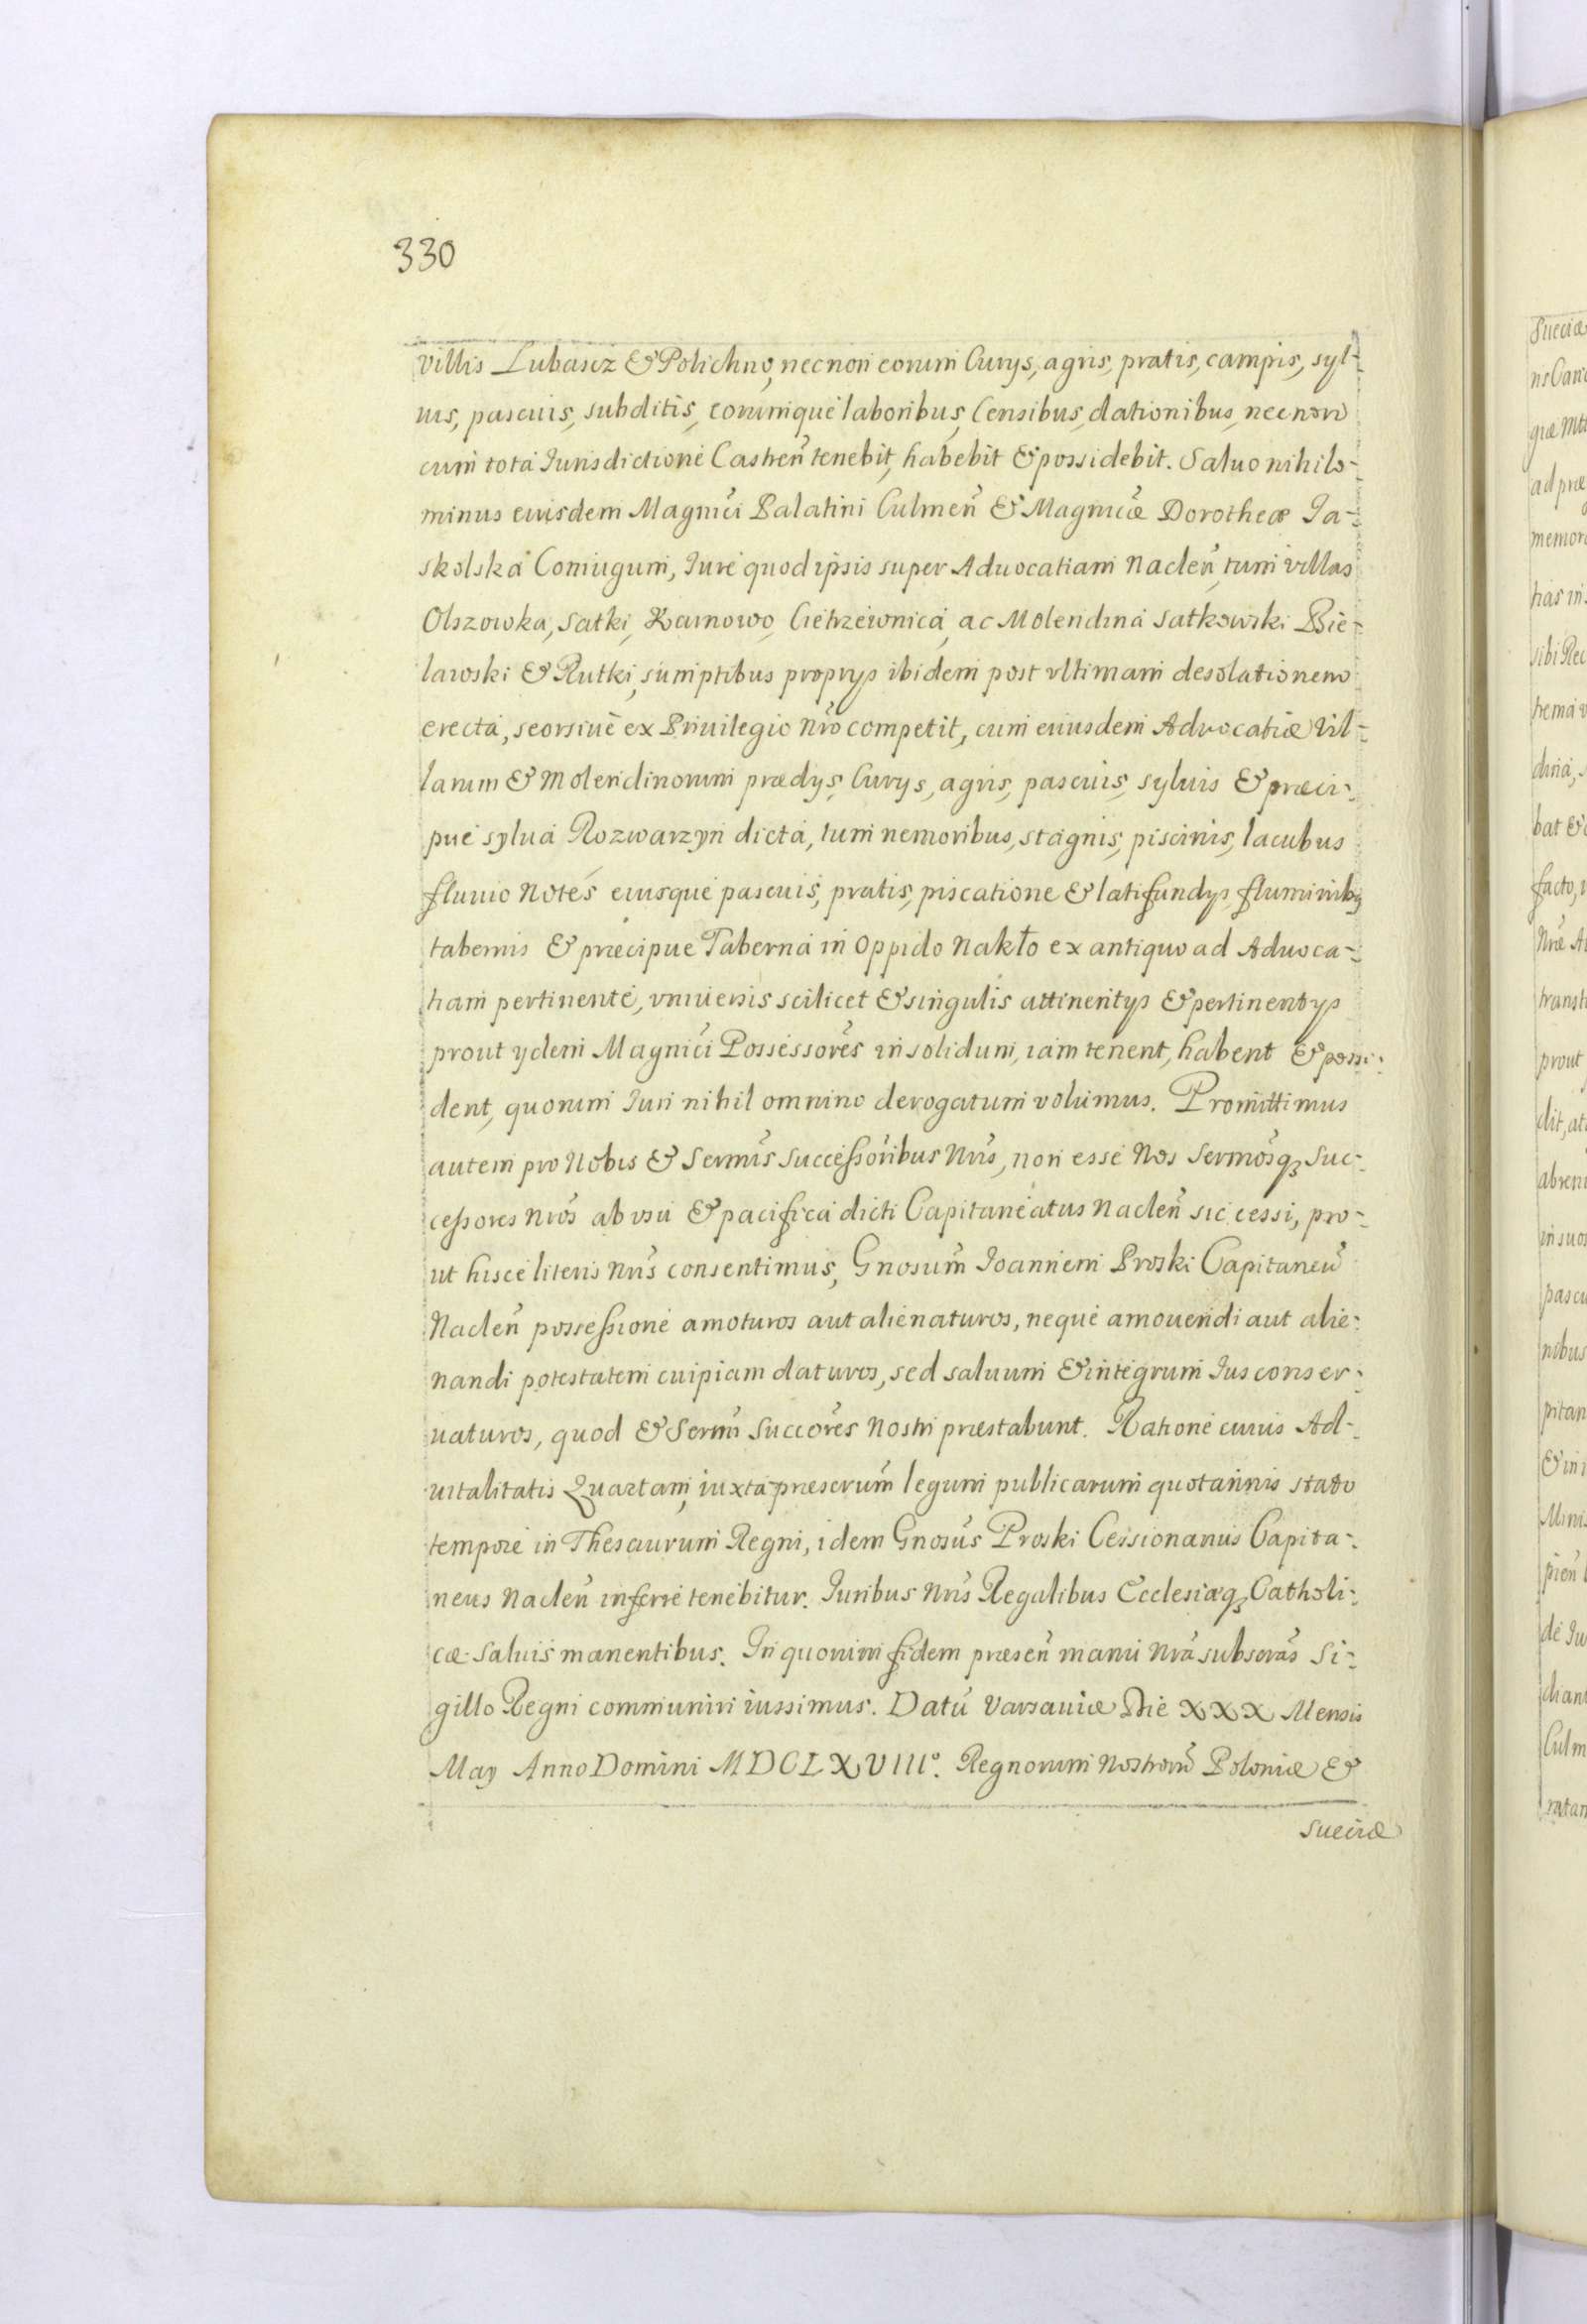 330
villis Lubascz & Polichno, necnon eorum Curijs, agris, pratis, campis, syl-
uis, pascuis, subditis, eorumque laboribus, Censibus, dationibus, necnon
cum tota Iurisdictione Castreñ tenebit, habebit & possidebit. Saluo nihilo-
minus eiusdem Magnici Palatini Culmeñ & Magnicæ Dorotheæ Ja-
skolska Coniugum, Iure quod ipsis super Aduocatiam Nacleñ, tum villas
Olszowka, Satki, Karnowo, Cietrzewnica, ac Molendina Satkowski Bie-
lawski & Rutki, sumptibus proprijs ibidem post vltimam desolationem
erecta, seorsiue ex Priuilegio Nro competit, cum eiusdem Advocatiæ Vil-
larum & Molendinorum prædijs, Curijs, agris, pascuis, syluis & præci-
pue sylua Rozwarzyn dicta, tum nemoribus, stagnis, piscinis, lacubus
fluuio Notes eiusque pascuis, pratis, piscatione & latifundijs, fluminibq
tabernis & præcipue Taberna in Oppido Nakło ex antiquo ad Aduoca-
tiam pertinente, vniuersis scilicet & singulis attinentijs & pertinentijs
prout ijdem Magnici Possessores in solidum, iam tenent, habent & possi-
dent, quorum Iuri nihil omnino derogatum volumus. Promittimus
autem pro Nobis & Sermis Successoribus Nris, non esse Nos Sermosq Suc-
cessores Nros ab vsu & pacifica dicti Capitaneatus Nacleñ sic cessi, pro-
ut hisce literis Nris consentimus, Gnosum Ioannem Proski Capitaneũ
Nacleñ possessione amoturos aut alienaturos, neque amouendi aut alie-
nandi potestatem cuipiam daturos, sed saluum & integrum Ius conser-
uaturos, quod & Sermi Succores Nostri præstabunt. Ratione cuius Ad-
uitalitatis Quartam, iuxta præscrum legum publicarum quotannis stato
tempore in Thesaurum Regni, idem Gnosus Proski Cessionarius Capita-
neus Nacleñ inferre tenebitur. Iuribus Nris Regalibus Ecclesiæq Catholi-
cæ saluis manentibus. In quorum fidem præseñ manu Nra subscras Si-
gillo Regni communiri iussimus. Datũ Varsauiæ Die XXX Mensis
Maij Anno Domini MDCLXVIIIº. Regnorum Nostrorũ Poloniæ &
Sueciæ